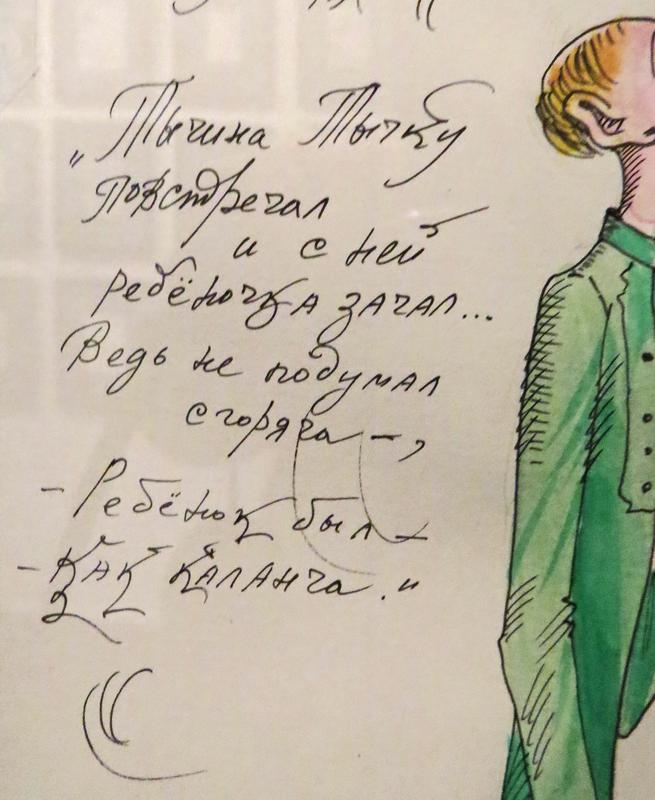 „Тычина Тычку
повстречал
и с ней
ребёночка зачал...
Ведь не подумал
сгоряча –,
– Ребёнок был –
– как каланча."